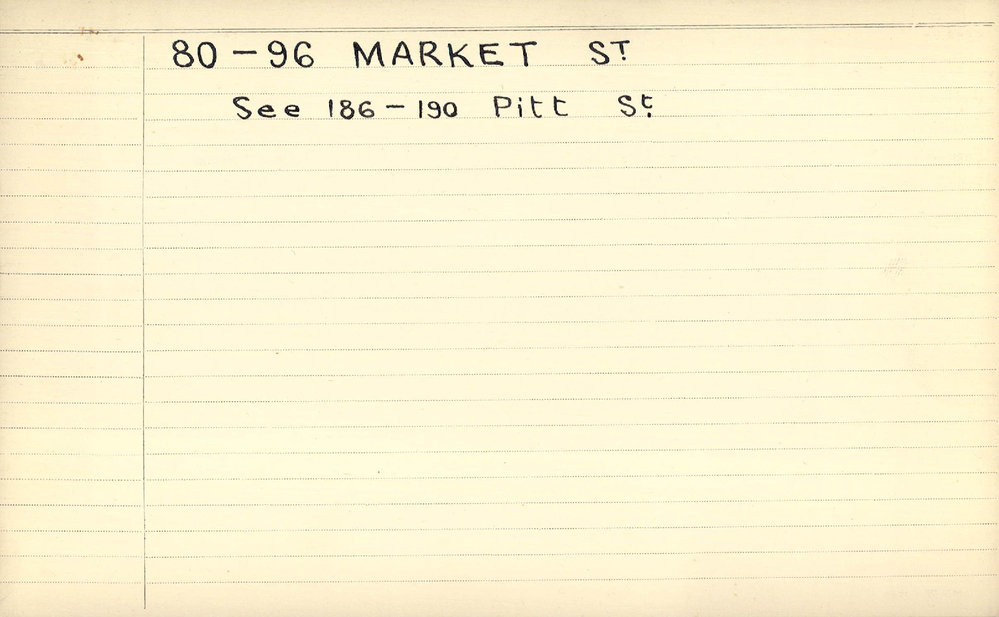 80 - 96 MARKET ST.
See 186 - 190 Pitt St.